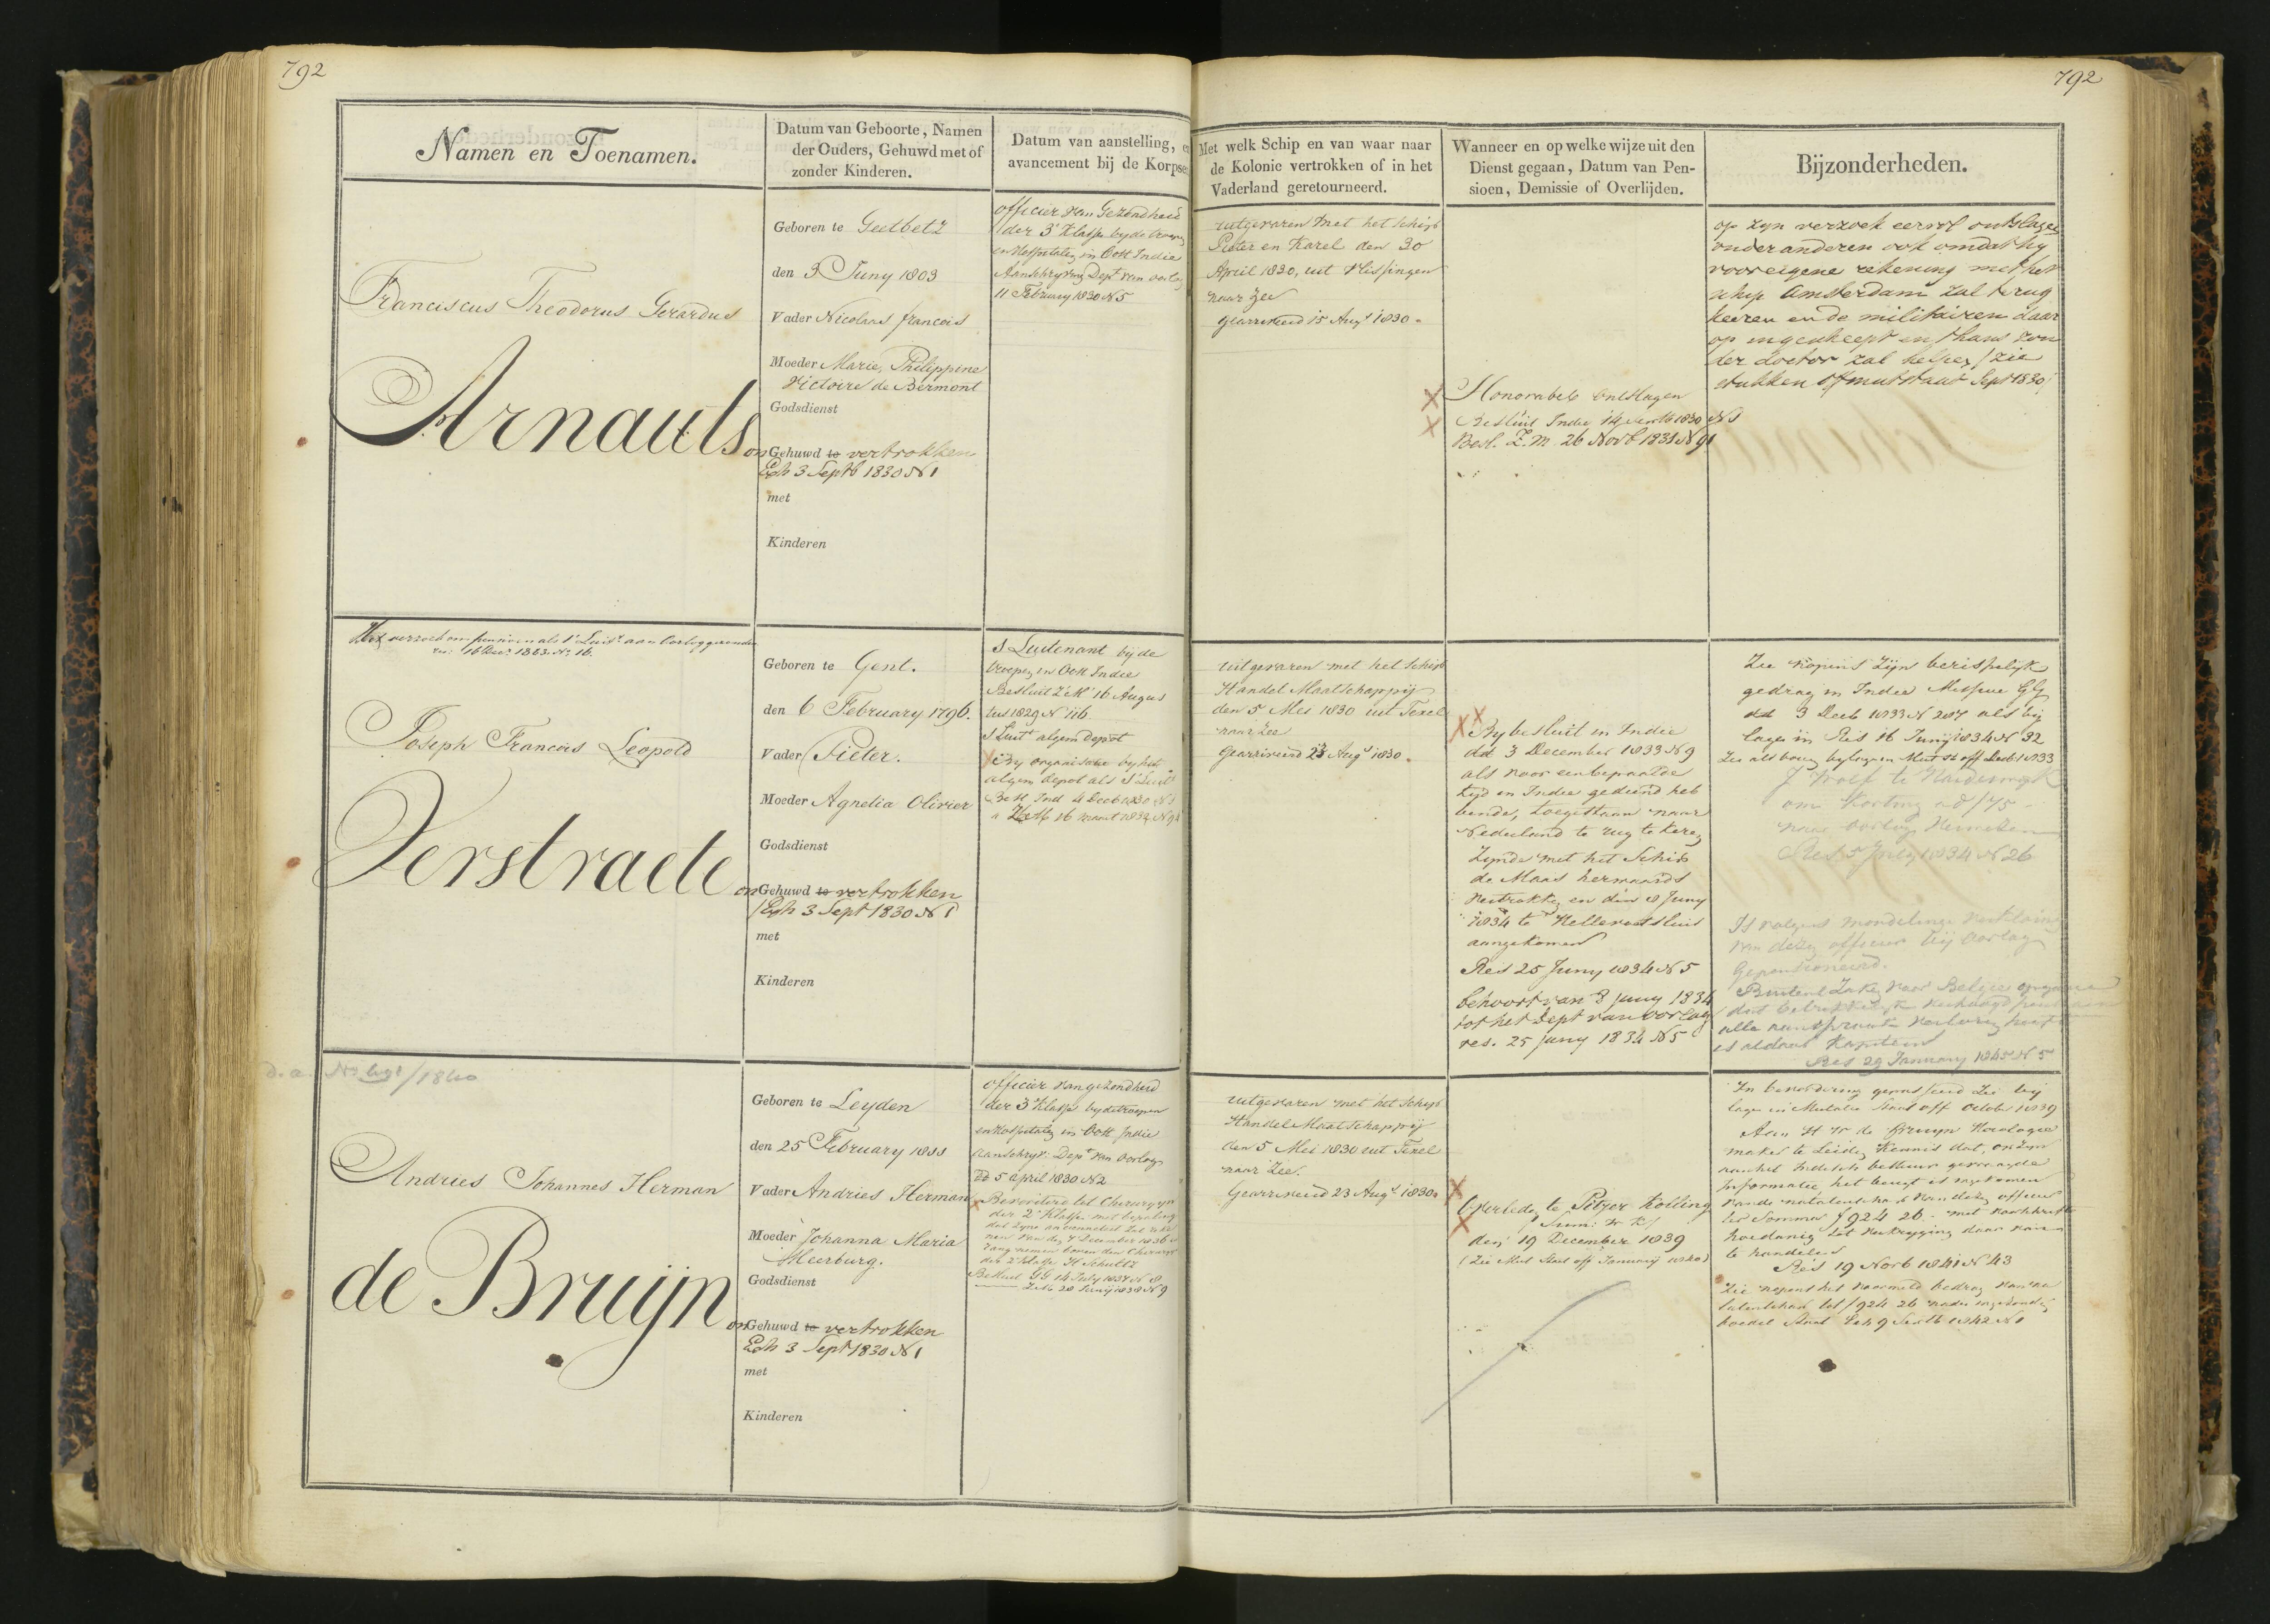 792
792
Namen en Toenamen.
Datum van Geboorte, Namen
der Ouders, Gehuwd met of
zonder Kinderen.
Datum van aanstelling, en
avancement bij de Korpsen
Met welk Schip en van waar naar
de Kolonie vertrokken of in het
Vaderland geretourneerd.
Wanneer en op welke wijze uit den
Dienst gegaan, Datum van Pen-
sioen, Demissie of Overlijden.
Bijzonderheden.
Franciscus Theodorus Gerardus
Arnauts
Geboren te Geetbetz
den 3 Juny 1803
Vader Nicolaas francois
Moeder Marie, Philippine
Victoire de Bermont
Godsdienst
on Gehuwd te vertrokken
Exh 3 Septb 1830 N 1
met
Kinderen
officier van Gezondheid
der 3e Klasse by de troepen
en Hospitalen in Oost Indie
Aanschryving Dept van oorlog
11 February 1830 N 5
uitgevaren met het schip
Pieter en Karel den 30
April 1830, uit Vlissingen
naar Zee
gearriveerd 15 Augs 1830.
Honorabel ontslagen
Besluit Indie 14 Septb 1830 N 1
Besl. Z.M. 26 Novb 1831 N 91
op zyn verzoek eervol ontslagen
onder anderen ook omdat hy
voor eigene rekening met het
schip Amsterdam zal terug
keeren en de militairen daar
op ingescheept en thans zon
der doctor zal helpen / zie
stukken Off mut staat Sept 1830/
Het verzoek om pensioen als 1e Luitt aan Oorlog gezonden
res: 16 Decr 1863 N. 16.
Joseph Francois Leopold
Verstraete
Geboren te Gent.
den 6 February 1796.
Vader Pieter.
Moeder Agnelia Olivier
Godsdienst
on Gehuwd te vertrokken
/Exh 3 Sept 1830 N 1
met
Kinderen
1 Luitenant bij de
troepen in Oost Indie
Besluit Z M 16 Augus
tus 1829 N 116
1 Luitt algem Depot
By organisatie by het
algem depot als 1 Luitt
Besl Ind 4 Decb 1830 N
ZM 16 maart 1832 N 91
uitgevaren met het schip
Handel Maatschappij
den 5 Mei 1830 uit Texel
naar Zee
Gearriveerd 23 Augs 1830.
By besluit in Indie
dd 3 December 1833 N 9
als voor een bepaalde
tyd in Indie gediend heb
bende, toegestaan naar
Nederland te rug te keren
Zynde met het Schip
de Maas herwaards
vertrokken en den 8 Juny
1834 te Hellevoetsluis
aangekomen
Res 25 Juny 1834 N 5
behoort van 8 juny 1834
tot het dept van Oorlog
res. 25 juny 1834 N 5
Zie nopens zijn berispelijk
gedrag in Indie Missive GG
dd 3 Decb 1833 N 207 als bij
lagen in Res 16 Juny 1834 N 32
Zie als boven bylagen Mut st off Decb 1833
om Korting ad f 75
naar oorlog
Res 5 July 1834 N 26
Is volgens mondelinge verklaring
van dezen officier bij oorlog
Gepensioneerd.
is aldaar Kapitein
Res 29 January 1845 N 5
Andries Johannes Herman
de Bruijn
Geboren te Leyden
den 25 February 1811
Vader Andries Herman
Moeder Johanna Maria
Meerburg.
Godsdienst
on Gehuwd te vertrokken
Exh 3 Sept 1830 N 1
met
Kinderen
officier van gezondheid
der 3e Klasse by de troepen
en Hospitalen in Oost Indie
aanschryv: Dept van Oorlog
dd 5 april 1830 N 2
Bevorderd tot Chirurgyn
der 2e Klasse met bepaling
dat zyne ancienneteit zal reke
nen van den 7 December 1836
rang nemen boven den Chirurgn
der 2e Klasse H Schultz
Besluit GG 14 July 1837 N 8
ZM 28 Juny 1838 N 9
uitgevaren met het Schip
Handel Maatschappij
den 5 Mei 1830 uit Texel
naar Zee.
Gearriveerd 23 Augs 1830.
Overleden te Pitjer Kolling
/ Sum: W K /
den 19 December 1839
(Zie Mut Staat off January 1840)
In bevordering gepasseerd Zie bij
lagen in Mutatie Staat off October 1839
Aan H W de Bruyn Horologie
maker te Leiden Kennis dat, op zyn
aan het Indisch bestuur gevraagde
informatie het berigt is ingekomen
van de nalatenschap van dezen officier
ter Somma f 924 26.- met
hoedanig tot verkryging daar van
te handelen
Res 19 Novb 1841 N 43
Zie nopens het voormeld bedrag van na
latenschap tot f 924 26
boedel Staat Exh 9 Septb 1842 N 1